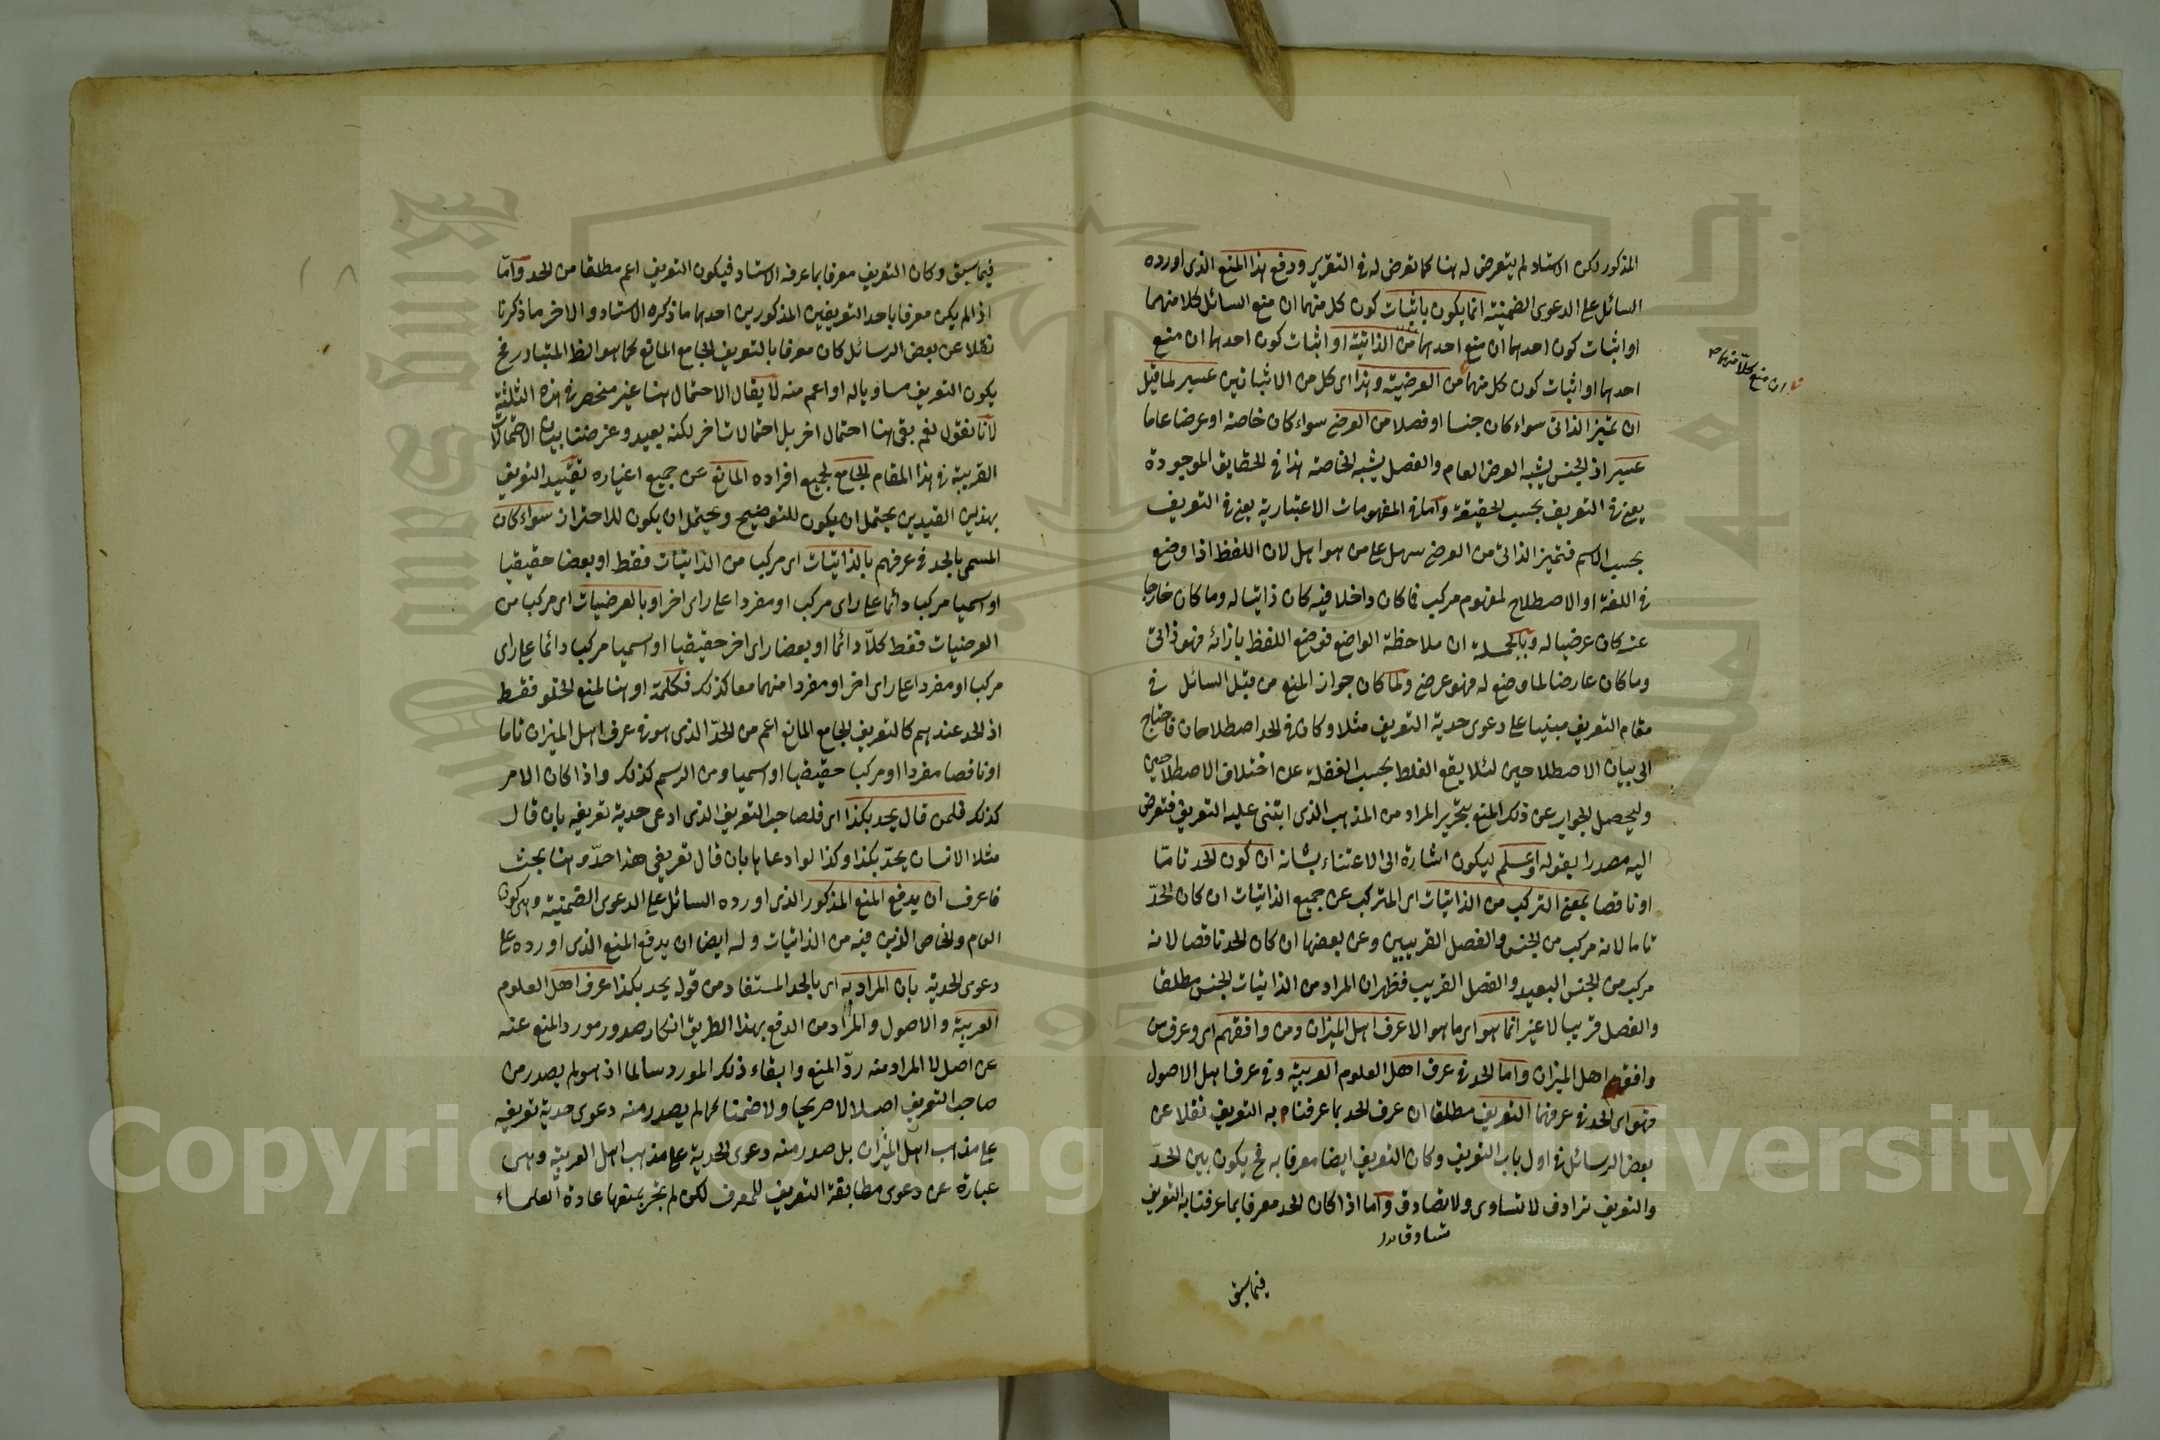 المذكور لكن الاستاد لم يتعرض له هنا كما تعرض له في التقرير ودفع هذا المنع الذي اورده
السائل على الدعوى الضمنية انما يكون باثبات كون كل منهما ان منع السائل كلا منهما
او اثبات كون احدهما ان منع احدهما من الذاتية او اثبات كون احدهما ان منع
احدهما او اثبات كون كل منهما من العرضية وهذا اى كل من الاثباتين عسير لما قيل
ان منع كلا منهما
ان تميز الذاتى سواء كان جنسا او فصلا من العرضى سواء كان خاصة او عرضا عاما
عسير اذ الجنس يشبه العرض العام والفصل يشبه الخاصة هذا في الحقايق الموجودة
يعنى في التعريف بحسب الحقيقة واما في المفهومات الاعتبارية يعنى في التعريف
بحسب الاسم فتميز الذاتى من العرضى سهل على من هو اهل لان اللفظ اذا وضع
في اللغة او الاصطلاح لمفهوم مركب فما كان داخلا فيه كان ذاتيا له وما كان خارجا
عنه كان عرضيا له وبالجملة ان ملاحظة الواضع فوضع اللفظ بازائه فهو ذاتى
وما كان عارضا لما وضع له فهو عرضى ولما كان جواز المنع من قبل السائل في
مقام التعريف مبنيا على دعوى حدية التعريف مثلا وكان في الحد اصطلاحان فاحتاج
الى بيان الاصطلاحين لئلا يقع الغلط بحسب الغفلة عن اختلاف الاصطلاحين
وليحصل الجواب عن ذلك المنع بتحرير المراد من المذهب الذى ابتنى عليه التعريف فتعرض
اليه مصدرا بقوله واعلم ليكون اشارة الى الاعتناء بشانه ان كون الحد تاما
او ناقصا بمعنى التركب من الذاتيات اى المتركب عن جميع الذاتيات ان كان الحد
تاما لانه مركب من الجنس والفصل القريبين وعن بعضها ان كان الحد ناقصا لانه
مركب من الجنس البعيد والفصل القريب فظهر ان المراد من الذاتيات الجنس مطلقا
والفصل قريبا لا غير انما هو اى ما هو الا عرف اهل الميزان ومن وافقهم اى وعرف من
وافق اهل الميزان واما الحد في عرف اهل العلوم العربية وفي عرف اهل الاصول
فهو اى الحد في عرفهما التعريف مطلقا ان عرف الحد بما عرفنا به التعريف نقلا عن
بعض الرسائل في اول باب التعريف وكان التعريف ايضا معرفا به فح يكون بين الحد
والتعريف ترادف لا تساوى ولا تصادق واما اذا كان الحد معرفا بما عرفنا به التعريف
فيما سبق
فيما سبق وكان التعريف معرفا بما عرفه الاستاد فيكون التعريف اعم مطلقا من الحد واما
اذا لم يكن معرفا باحد التعريفين المذكورين احدهما ما ذكره الاستاد والاخر ما ذكرنا
نقلا عن بعض الرسائل كان معرفا بالتعريف الجامع المانع كما هو الظ المتبادر فح
يكون التعريف مساويا له او اعم منه لا يقال الاحتمال هنا غير منحصر في هذه الثلثة
لانا نقول نعم بقى هنا احتمال اخر بل احتمالات اخر لكنه بعيد وغرضنا بيان الاحتمالات
القريبة في هذا المقام الجامع لجميع افراده المانع عن جميع اغياره تقييد التعريف
بهذين القيدين يحتمل ان يكون للتوضيح ويحتمل ان يكون للاحتراز سواء كان
المسمى بالحد في عرفهم بالذاتيات اى مركب من الذاتيات فقط او بعضا حقيقيا
او اسميا مركبا دائما على راى مركب او مفردا على راى اخر او بالعرضيات اى مركب من
العرضيات فقط كلا دائما او بعضا راى اخر حقيقيا او اسميا مركبا دائما على راى
مركبا او مفردا على راى اخر او مفردا منهما معا كذلك فكلمة او هنا لمنع الخلو فقط
اذ الحد عندهم كالتعريف الجامع المانع اعم من الحد الذى هو في عرف اهل الميزان تاما
او ناقصا مفردا او مركبا حقيقيا او اسميا ومن الرسم كذلك واذا كان الامر
كذلك فلمن قال يحد بكذا اى فلصاحب التعريف الذى ادعى حدية تعريفه بان قال
مثلا الانسان يحد بكذا وكذا لو ادعاها بان قال تعريفى هذا حد وهنا بحث
فاعرف ان يدفع المنع المذكور الذى اورده السائل على الدعوى الضمنية وهى كون
العام والخاص الذين فيه من الذاتيات وله ايضا ان يدفع المنع الذى اورده على
دعوى الحدية بان المراد به اى بالحد المستفاد من قوله يحد بكذا عرف اهل العلوم
العربية والاصول والمراد من الدفع بهذا الطريق انكار صدور مورد المنع عنه
عن اصل لا المراد منه رد المنع وابقاء ذلك المورد سالما اذ هو لم يصدر من
صاحب التعريف اصلا لا صريحا ولا ضمنا كما لم يصدر منه دعوى حدية تعريفه
على مذهب اهل الميزان بل صدر منه دعوى الحدية على مذهب اهل العربية وهى
عبارة عن دعوى مطابقة التعريف للمعرف لكن لم يجر بمنعها عادة العلماء
Copyright © King Saud University